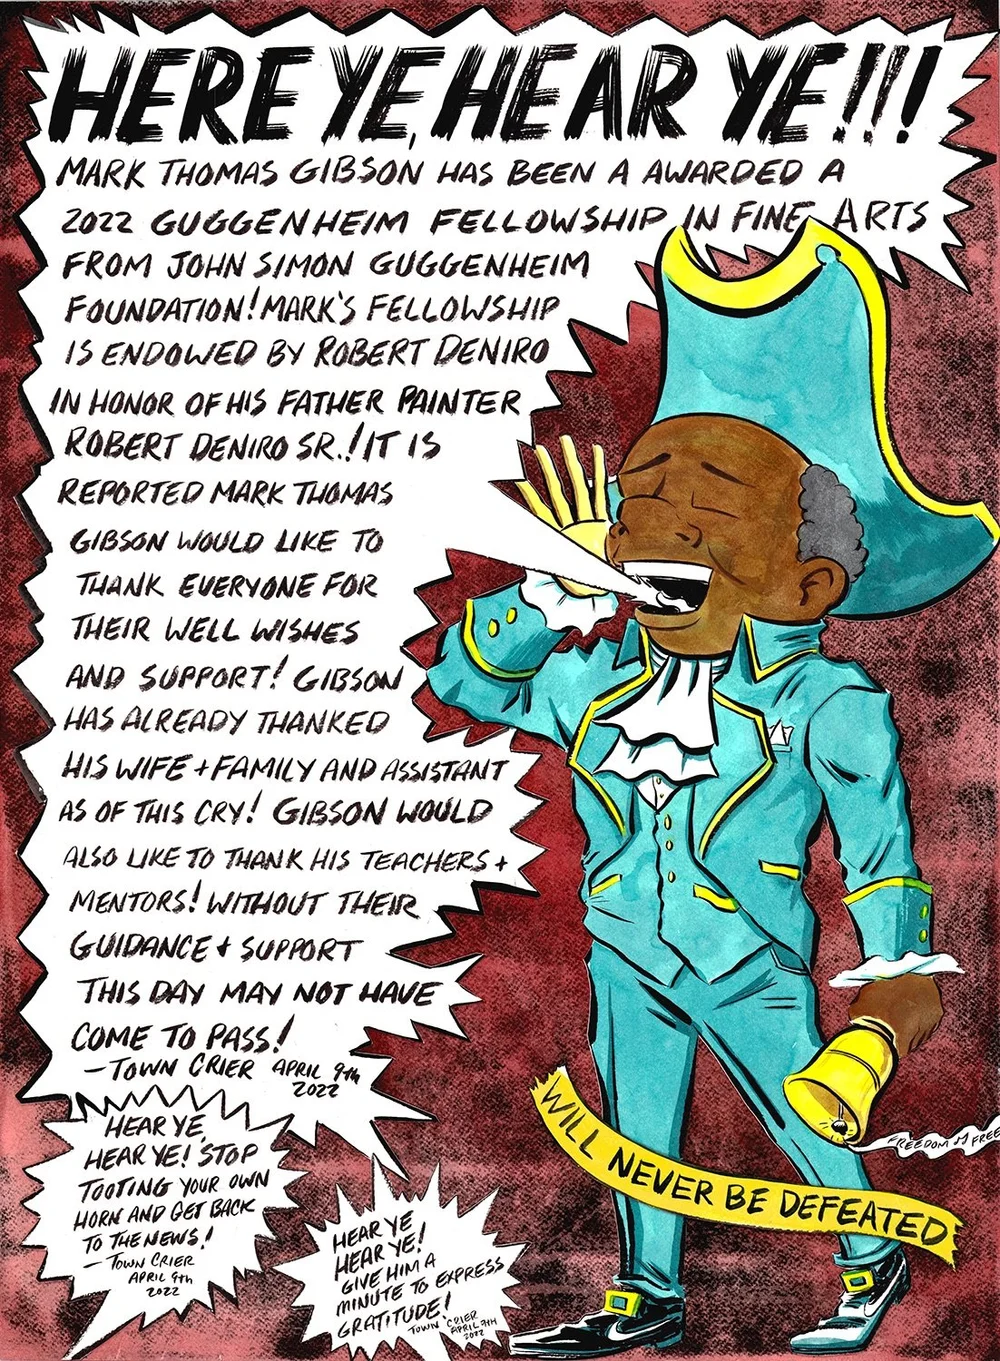 HERE YE, HEAR YE!!!
MARK THOMAS GIBSON HAS BEEN A AWARDED A
2022 GUGGENHEIM FELLOWSHIP IN FINE ARTS
FROM JOHN SIMON GUGGENHEIM
FOUNDATION! MARK'S FELLOWSHIP
IS ENDOWED BY ROBERT DENIRO
IN HONOR OF HIS FATHER PAINTER
ROBERT DENIRO SR.! IT IS
REPORTED MARK THOMAS
GIBSON WOULD LIKE TO
THANK EVERYONE FOR
THEIR WELL WISHES
AND SUPPORT! GIBSON
HAS ALREADY THANKED
HIS WIFE + FAMILY AND ASSISTANT
AS OF THIS CRY! GIBSON WOULD
ALSO LIKE TO THANK HIS TEACHERS +
MENTORS! WITHOUT THEIR
GUIDANCE + SUPPORT
THIS DAY MAY NOT HAVE
COME TO PASS!
- TOWN CRIER APRIL 9th
2022
HEAR YE,
HEAR YE! STOP
TOOTING YOUR OWN
HORN AND GET BACK
TO THE NEWS!
- TOWN CRIER
APRIL 9th
2022
HEAR YE
HEAR YE!
GIVE HIM A
MINUTE TO EXPRESS
GRATITUDE!
TOWN CRIER
APRIL 9TH
2022
WILL NEVER BE DEFEATED
FREEDOM